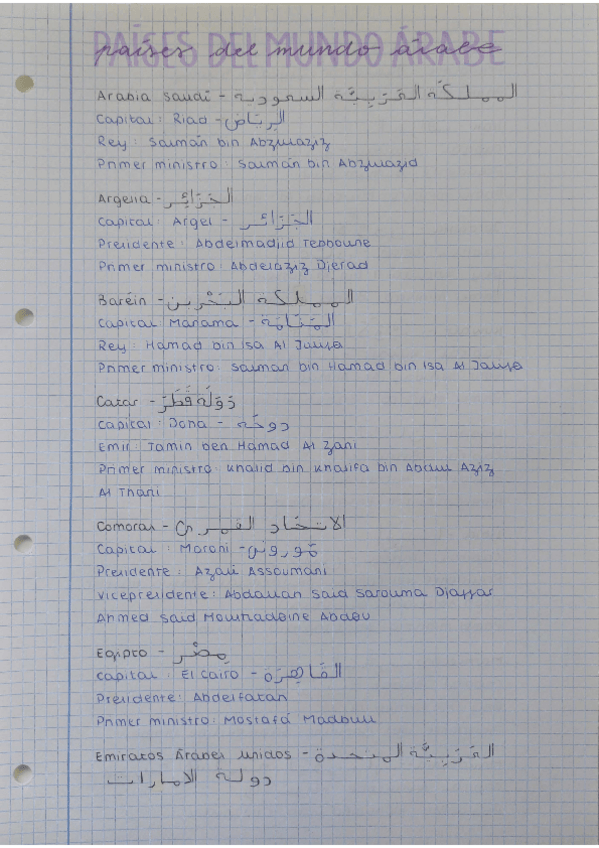 PAÍSES DEL MUNDO ÁRABE
países del mundo árabe
Arabia Saudí - المملكَة العَرَبِيَّة السعودية
Capital: Riad - الرِيَاض
Rey: Salmán bin Abzulaziz
Primer ministro: Salmán bin Abzulazid
Argelia - الجَزَائِر
Capital: Argel - الجَزَائر
Presidente: Abdelmadjid Tebboune
Primer ministro: Abdelaziz Djerad
Baréin - المملكة البَحْرين
Capital: Manama - المَنَامَة
Rey: Hamad bin Isa Al Jalifa
Primer ministro: Salman bin Hamad bin Isa Al Jalifa
Catar - دَوْلَة قَطَرَ
Capital: Doha - دوحَة
Emir: Tamin ben Hamad Al Zani
Primer ministro: Khalid bin Khalifa bin Abdul Aziz
Al Thani
Comoras - الاتحَاد القمري
Capital: Moroni - مُوروني
Presidente: Azali Assoumani
Vicepresidente: Abdallah Said Sarouma Djaffar
Ahmed Said Mouhadeine Abdou
Egipto - مِصْر
Capital: El Cairo - القَاهِرَة
Presidente: Abdelfatah
Primer ministro: Mostafá Madbuli
Emiratos Árabes Unidos - العَرَبِيَّة المتحدة
دولة الامارات